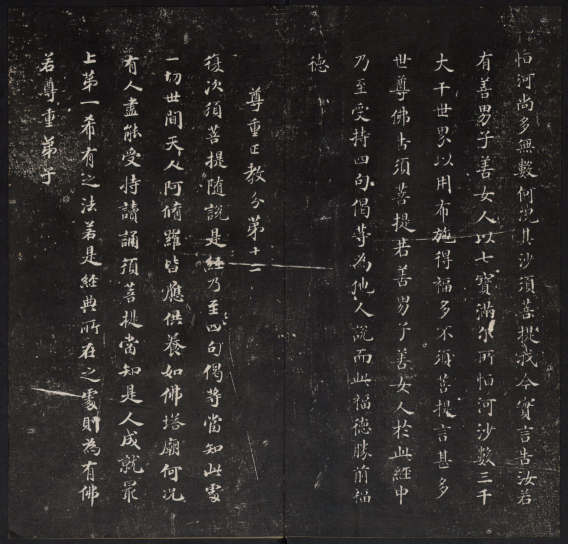 恒河尚多無數何況其沙須菩提我今實言告汝若
有善男子善女人以七寶滿尔所恒河沙數三千
大千世界以用布施得福多不須菩提言甚多
世尊佛告須菩提若善男子善女人於此經中
乃至受持四句偈等為他人說而此福德勝前福
德
尊重正教分第十二
復次須菩提隨說是經乃至四句偈等當知此處
一切世間天人阿脩羅皆應供養如佛塔廟何況
有人盡能受持讀誦須菩提當知是人成就最
上第一希有之法若是經典所在之處則為有佛
若尊重弟子